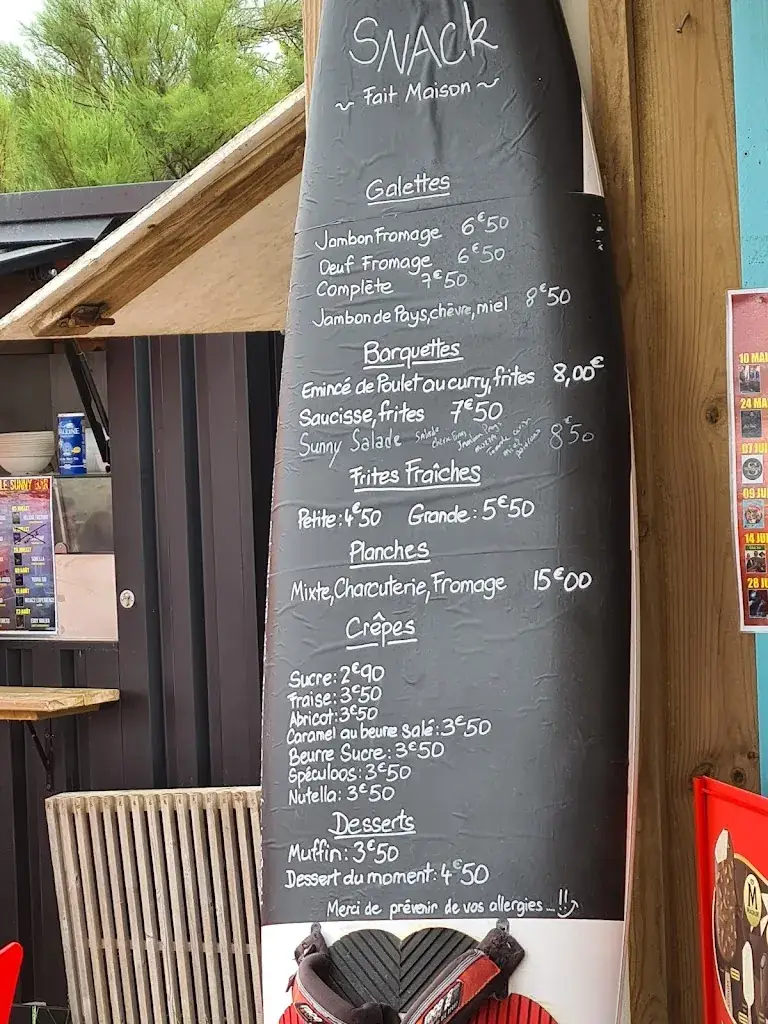 SNACK
~ Fait Maison ~
Galettes
Jambon Fromage 6€50
Oeuf Fromage 6€50
Complète 7€50
Jambon de Pays, chèvre, miel 8€50
Barquettes
Emincé de Poulet au curry, frites 8,00€
Saucisse, frites 7€50
Sunny Salade Salade 8€50
Frites Fraîches
Petite: 4€50 Grande: 5€50
Planches
Mixte, Charcuterie, Fromage 15€00
Crêpes
Sucre: 2€90
Fraise: 3€50
Abricot: 3€50
Caramel au beure salé: 3€50
Beurre Sucre: 3€50
Spéculoos: 3€50
Nutella: 3€50
Desserts
Muffin: 3€50
Dessert du moment: 4€50
Merci de prévenir de vos allergies...!!
LE SUNNY BAR
10 MAI
24 MA
07 JUI
09 JUI
14 JUI
28 JU
M